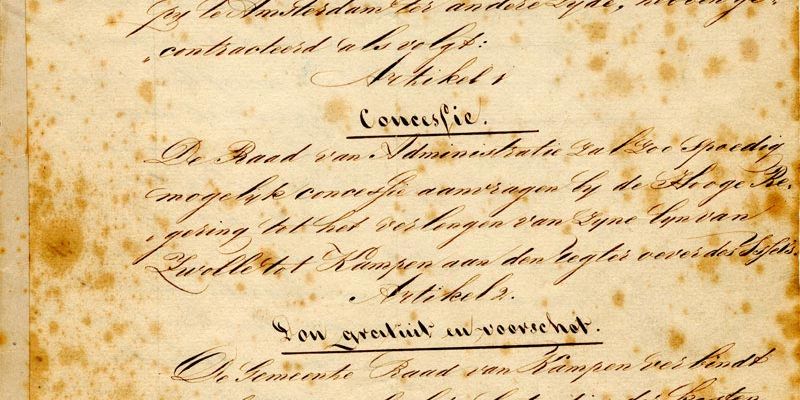 py te Amsterdam ter andere zyde, hebben ge-
contracteerd als volgt:
Artikel 1
Concessie.
De Raad van Administratie zal zoo spoedig
mogelyk concessie aanvragen by de Hooge Re-
gering tot het verlengen van zyne lyn van
Zwolle tot Kampen aan den regter oever des IJssels.
Artikel 2.
Don gratuit en voorschot.
De Gemeente Raad van Kampen verbindt
kosten